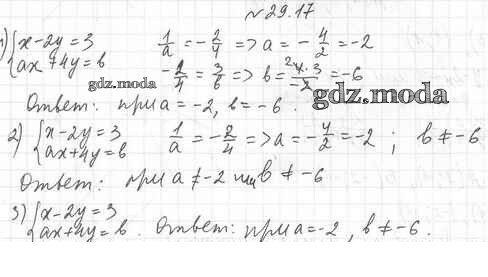 №29.17
1) {x-2y=3 1/a = -2/4 => a = -4/2 = -2
ax+4y=b -2/4 = 3/b => b = 4·3/-2 = -6
gdz.moda
Ответ: при a = -2, b = -6.
gdz.moda
2) {x-2y=3 1/a = -2/4 => a = -4/2 = -2 ; b ≠ -6
ax+4y=b
Ответ: при a ≠ -2 или b ≠ -6
3) {x-2y=3
ax+4y=b. Ответ: при a=-2, b ≠ -6.